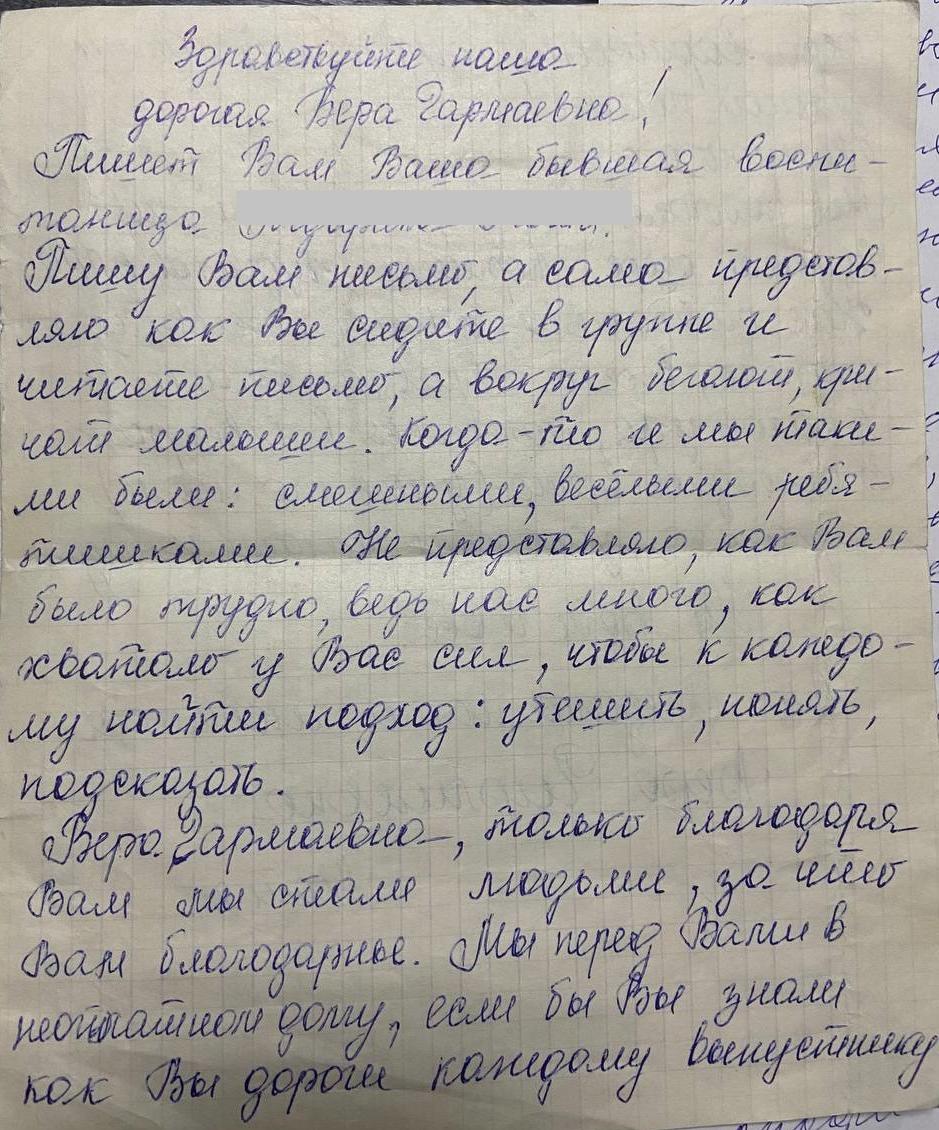 Здравствуйте наша
дорогая Вера Гармаевна!
Пишет Вам Ваша бывшая воспи-
танница
Пишу Вам письмо, а сама представ-
ляю как Вы сидите в группе и
читаете письмо, а вокруг бегают, кри-
чат малыши. Когда-то и мы таки-
ми были: смешными, весёлыми ребя-
тишками. Не представляю, как Вам
было трудно, ведь нас много, как
хватало у Вас сил, чтобы к каждо-
му найти подход: утешить, понять,
подсказать.
Вера Гармаевна, только благодаря
Вам мы стали людьми, за что
Вам благодарные. Мы перед Вами в
неоплатном долгу, если бы Вы знали
как Вы дороги каждому выпустнику